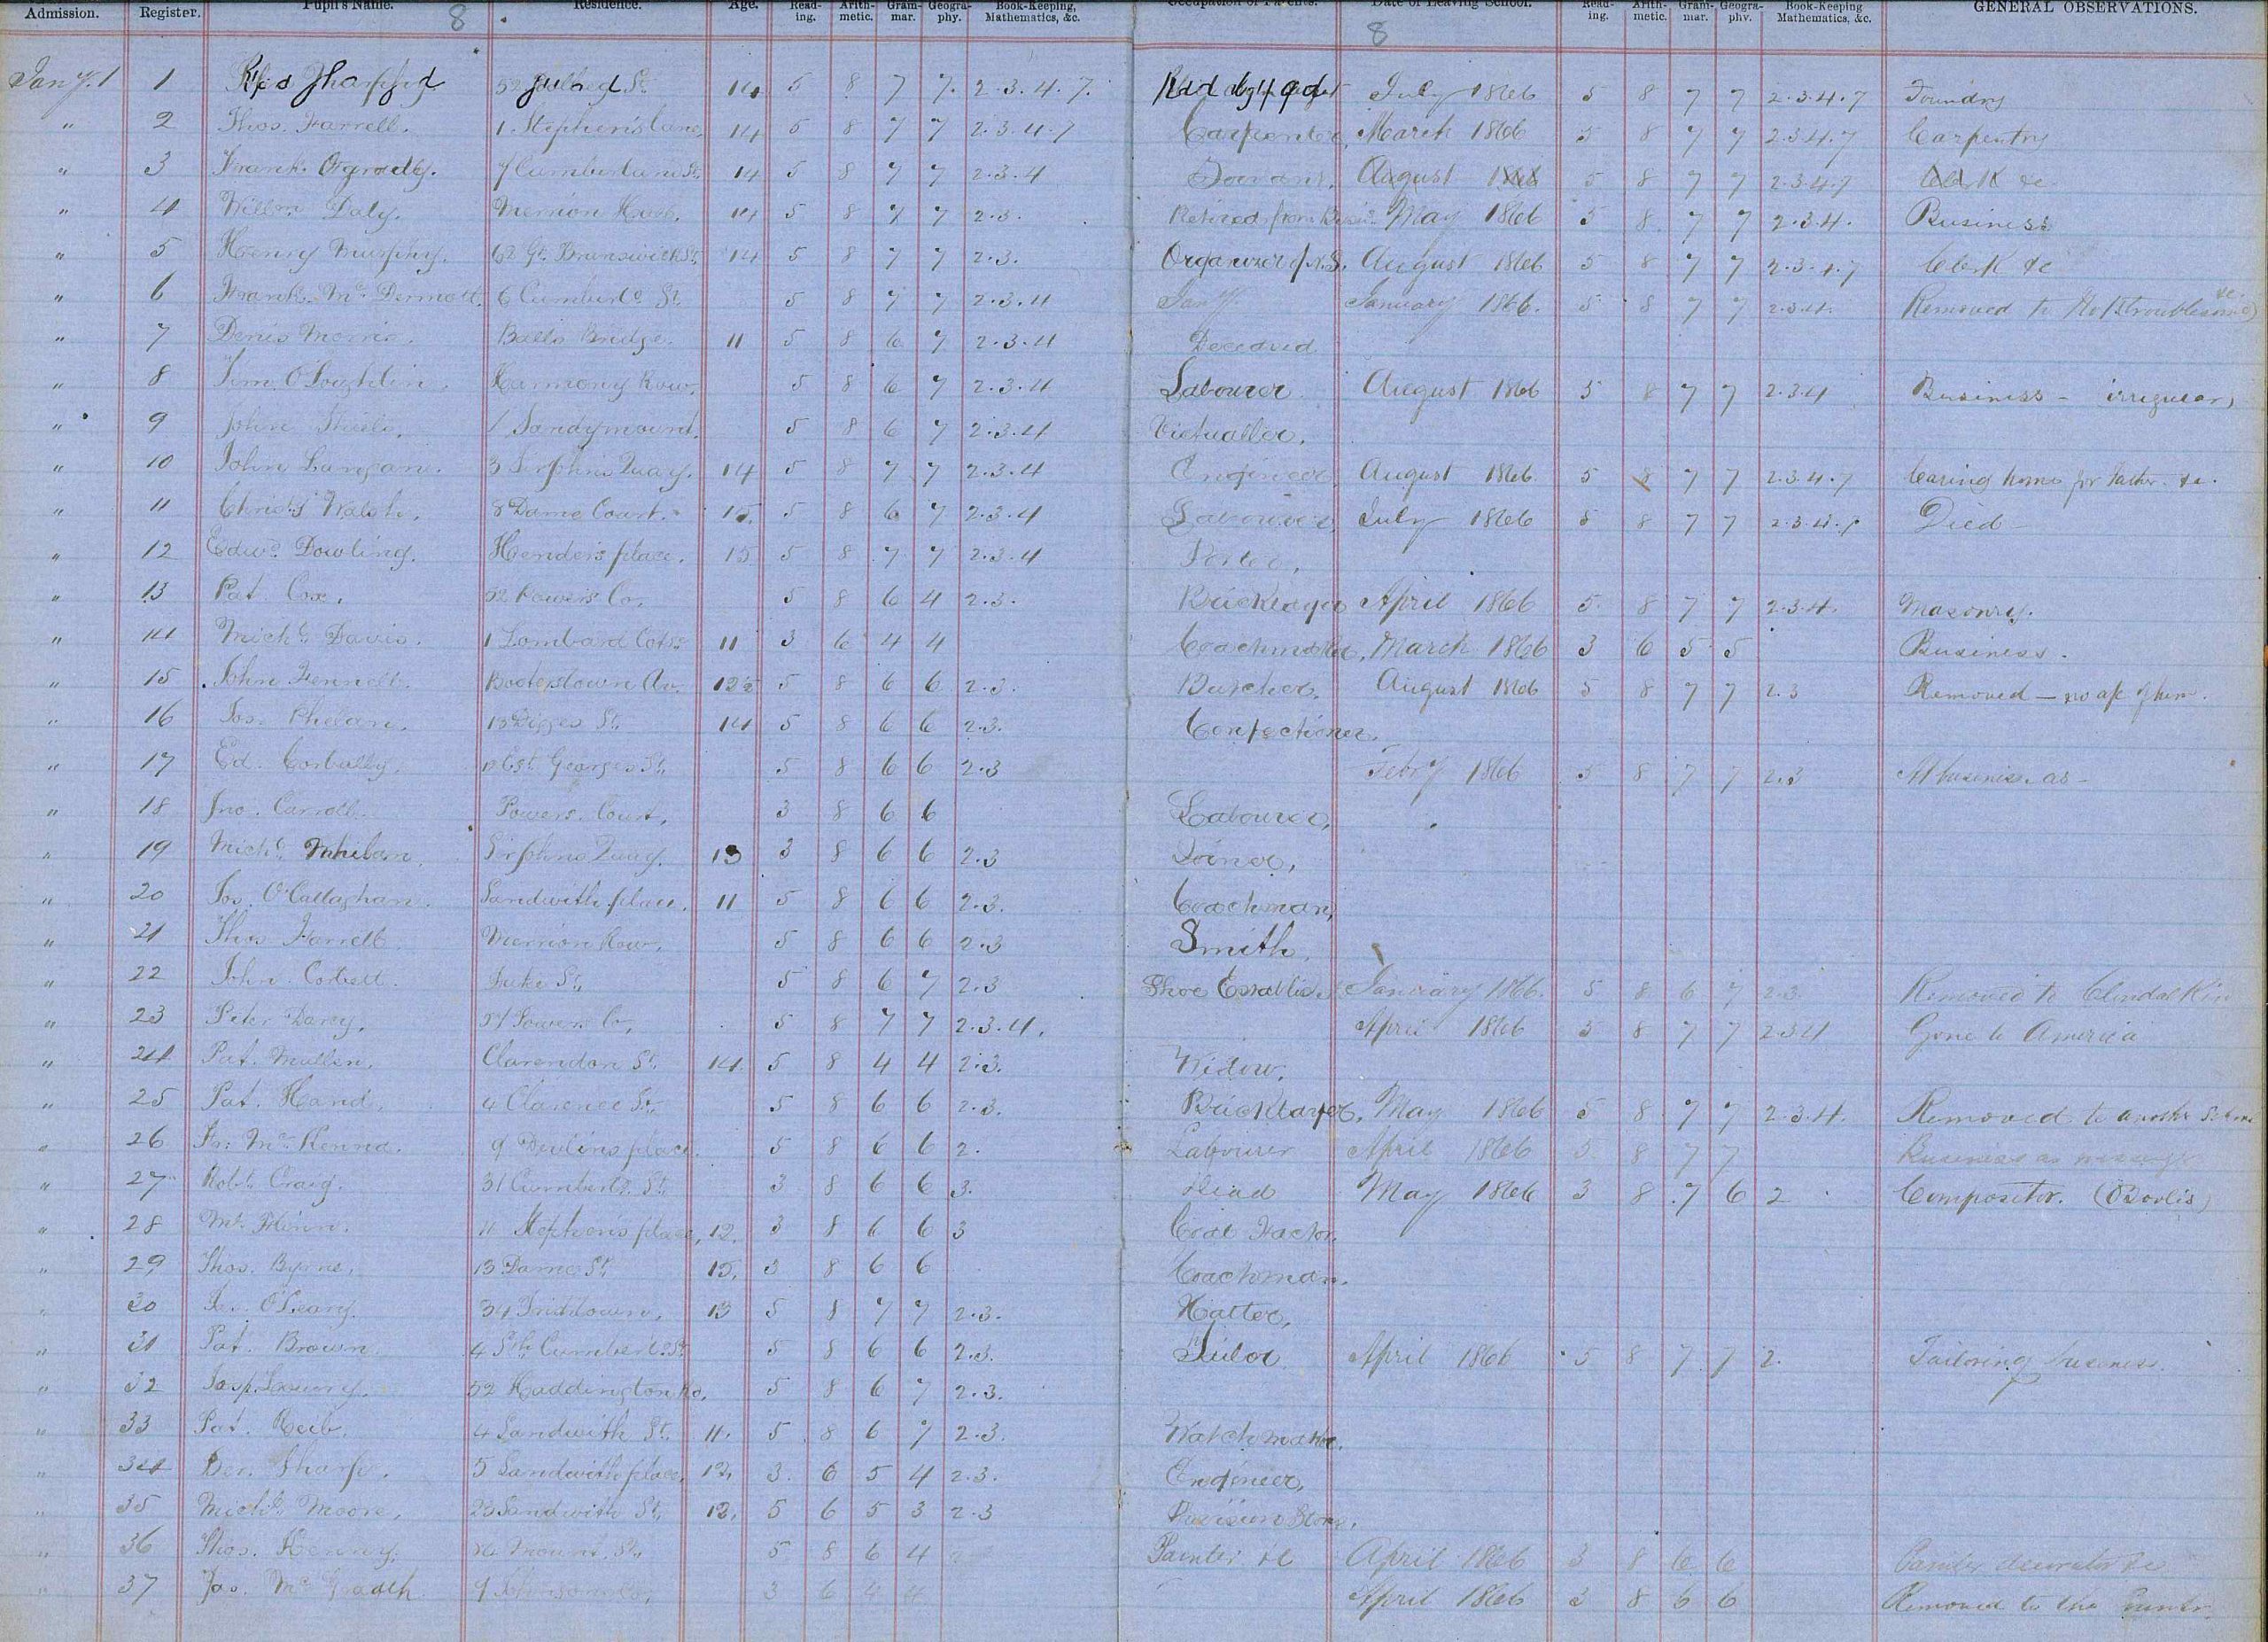 Admission. Register. Pupil's Name. Residence. Age. Read-ing. Arith-metic. Gram-mar. Geogra-phy. Book-Keeping, Mathematics, &c. Occupation of Parents. Date of Leaving School. Read-ing. Arith-metic. Gram-mar. Geogra-phy. Book-Keeping Mathematics, &c. GENERAL OBSERVATIONS.
8 8
Jany. 1 1 52 St. 14 5 8 7 7. 2.3.4.7. July 1866 5 8 7 7 2.3.4.7 Foundry
" 2 Thos. Farrell. 1 Stephen's lane, 14 5 8 7 7 2.3.4.7 Carpenter, March 1866 5 8 7 7 2.3.4.7 Carpentry
" 3 Frank. Ogrady. 7 Cumberland St. 14 5 8 7 7 2.3.4 Servant. August 1866 5 8 7 7 2.3.4.7 Clerk &c
" 4 Willm. Daly. Merrion 14 5 8 7 7 2.3. Retired from Busis. May 1866 5 8 7 7 2.3.4. Business
" 5 Henry Murphy. 62 Gt. Brunswick St. 14 5 8 7 7 2.3. Organizer of N.S. August 1866 5 8 7 7 2.3.4.7 Clerk &c
" 6 Frank. Mc Dermott. 6 Cumberld. St. 5 8 7 7 2.3.4 January 1866. 5 8 7 7 2.3.4. Removed to (troublesome) &c.
" 7 Denis Morris. Balls Bridge. 11 5 8 6 7 2.3.4 Deceased
" 8 Jim. O'Loughlin. Harmony Row, 5 8 6 7 2.3.4 Labourer August 1866 5 8 7 7 2.3.4 Business - irregular
" 9 John Shiels. Sandymount. 5 8 6 7 2.3.4 Victualler.
" 10 John Langan. 3 Sir John's Quay. 14 5 8 7 7 2.3.4 Engineer August 1866 5 8 7 7 2.3.4.7 home for Father. &c.
" 11 Christr. Walsh. 8 Dame Court. 15. 5 8 6 7 2.3.4 Labourer, July 1866 5 8 7 7 2.3.4.7 Died
" 12 Edwd. Dowling. place. 15 5 8 7 7 2.3.4 Porter,
" 13 Pat. Cox. 52 Powers Co. 5 8 6 4 2.3. Bricklayer April 1866 5. 8 7 7 2.3.4. Masonry.
" 14 Michl. Davis. 1 Lombard Cots. 11 3 6 4 4 Coachmaker, March 1866 3 6 5 5 Business.
" 15 John Fennell. Booterstown Av. 12½ 5 8 6 6 2.3. Butcher. August 1866 5 8 7 7 2.3 Removed — no a/c of him.
" 16 Jos. Phelan. 13 Digges St. 14 5 8 6 6 2.3. Confectioner.
" 17 Ed. Corbally. Georges St. 5 8 6 6 2.3 Feby 1866 5 8 7 7 2.3 At business as -
" 18 Jno. Carroll. Powers Court, 3 8 6 6 Labourer,
" 19 Michl. Whelan. Sir Johns Quay. 13 3 8 6 6 2.3 Joiner,
" 20 Jos. O'Callaghan. Sandwith place. 11 5 8 6 6 2.3. Coachman,
" 21 Thos Farrell. Merrion Row. 5 8 6 6 2.3 Smith.
" 22 John Corbett. Duke St. 5 8 6 7 2.3 Shoe Establis. January 1866. 5 8 6 7 2.3. Removed to Clondalkin
" 23 Peter Darcy. 5 8 7 7 2.3.4. April 1866 5 8 7 7 2.3.4 Gone to America
" 24 Pat. Mullen. Clarendon St. 14. 5 8 4 4 2.3. Widow.
" 25 Pat. Hand. 4 Clarence St. 5 8 6 6 2.3. Bricklayer. May 1866 5 8 7 7 2.3.4. Removed to another School
" 26 Mc Kenna. 9 Devlins place. 5 8 6 6 2. Labourer April 1866 5 8 7 7 Business as messenger
" 27 Robt. Craig. 31 Cumberld. St. 3 8 6 6 3. Dead May 1866 3 8 7 6 2 Compositor.
" 28 4 Stephens place, 12. 3 8 6 6 3 Coal Factor.
" 29 Thos. Byrne. 13 Dame St. 15. 3 8 6 6 Coachman.
" 30 Jas. O'Leary. 13 5 8 7 7 2.3. Hatter,
" 31 Pat. Brown. 4 Sth. Cumberld. St. 5 8 6 6 2.3. Tailor April 1866 5 8 7 7 2. Tailoring business.
" 32 52 Haddington Rd. 5 8 6 7 2.3.
" 33 Pat. 4 Sandwith St. 11. 5 8 6 7 2.3. Watchmaker.
" 34 Ber. Sharp. 5 Sandwith place, 12. 3. 6 5 4 2.3. Engineer,
" 35 Michl. Moore. 23 Sandwith St. 12. 5 6 5 3 2.3 Provision Store.
" 36 Thos. Mount St. 5 8 6 4 2 Painter &c April 1866 3 8 6 6 Painter decorator &c
" 37 Jas. Mc 3 6 4 4 April 1866 3 8 6 6 Removed to the